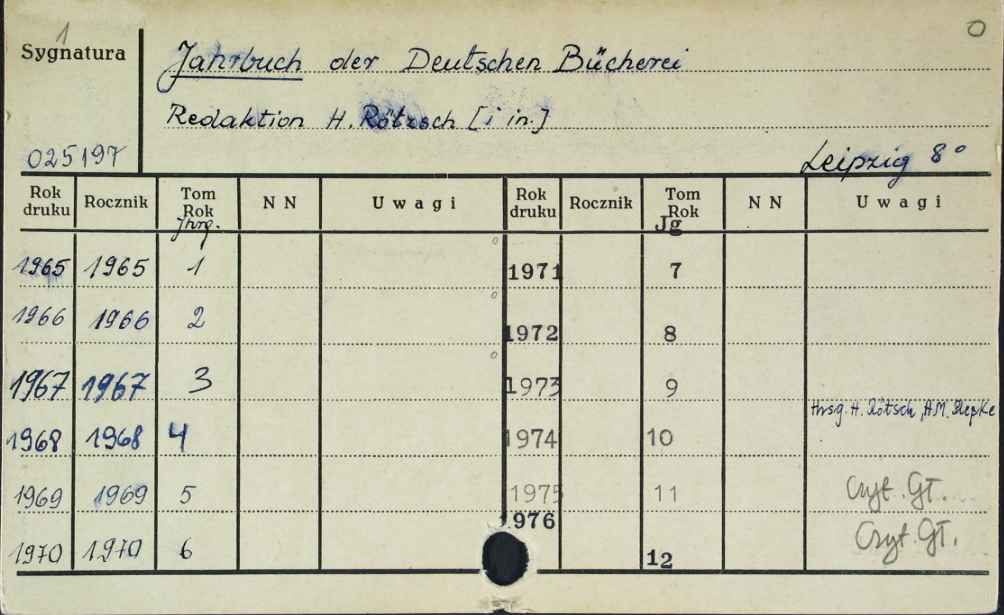 1
Sygnatura
Jahrbuch der Deutschen Bücherei
Redaktion H. Rötzsch [i in.]
025197
Leipzig 8°
Rok druku Rocznik Tom Rok NN Uwagi Rok druku Rocznik Tom Rok NN Uwagi
Jhrg. Jg
1965 1965 1 1971 7
1966 1966 2 1972 8
1967 1967 3 1973 9
Hrsg. H. Rötsch, A.M.
1968 1968 4 1974 10
1969 1969 5 1975 11 Czyt. Gł.
1976
1970 1970 6 12 Czyt. Gł.